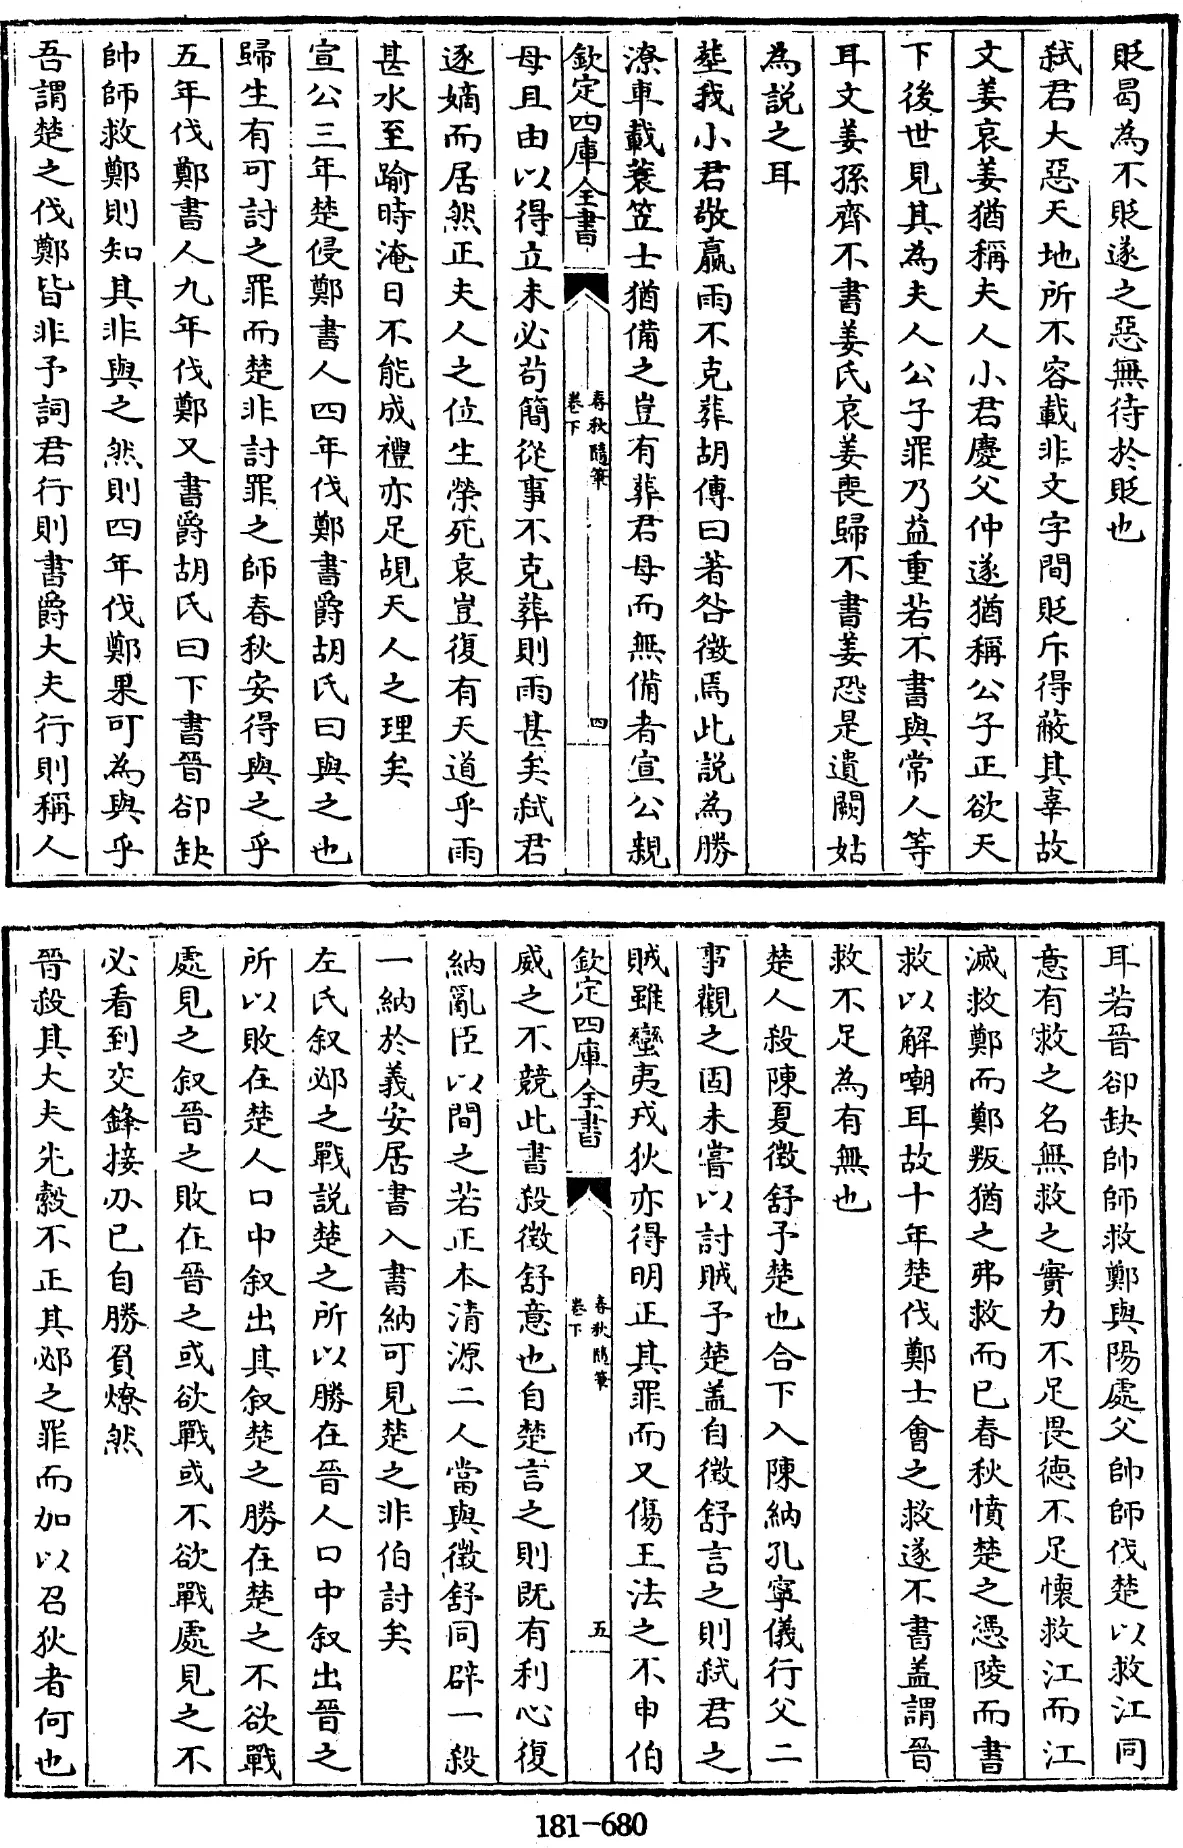 貶曷為不貶遂之惡無待於貶也
弒君大惡天地所不容載非文字間貶斥得蔽其辜故
文姜哀姜猶稱夫人小君慶父仲遂猶稱公子正欲天
下後世見其為夫人公子罪乃益重若不書與常人等
耳文姜孫齊不書姜氏哀姜喪歸不書姜恐是遺闕姑
為說之耳
塟我小君敬嬴雨不克葬胡傳曰著咎徵焉此說為勝
潦車載蓑笠士猶備之豈有葬君母而無備者宣公親
欽定四庫全書
春秋隨筆
卷下
四
母且由以得立未必茍簡從事不克葬則雨甚矣弒君
逐嫡而居然正夫人之位生榮死哀豈復有天道乎雨
甚水至踰時淹日不能成禮亦足覘天人之理矣
宣公三年楚侵鄭書人四年伐鄭書爵胡氏曰與之也
歸生有可討之罪而楚非討罪之師春秋安得與之乎
五年伐鄭書人九年伐鄭又書爵胡氏曰下書晉卻缺
帥師救鄭則知其非與之然則四年伐鄭果可為與乎
吾謂楚之伐鄭皆非予詞君行則書爵大夫行則稱人
耳若晉卻缺帥師救鄭與陽處父帥師伐楚以救江同
意有救之名無救之實力不足畏德不足懷救江而江
滅救鄭而鄭叛猶之弗救而已春秋憤楚之憑陵而書
救以解嘲耳故十年楚伐鄭士會之救遂不書盖謂晉
救不足為有無也
楚人殺陳夏徵舒予楚也合下入陳納孔寧儀行父二
事觀之固未嘗以討賊予楚盖自徵舒言之則弒君之
賊雖蠻夷戎狄亦得明正其罪而又傷王法之不申伯
欽定四庫全書
春秋隨筆
卷下
五
威之不競此書殺徵舒意也自楚言之則既有利心復
納亂臣以間之若正本清源二人當與徵舒同辟一殺
一納於義安居書入書納可見楚之非伯討矣
左氏叙邲之戰說楚之所以勝在晉人口中叙出晉之
所以敗在楚人口中叙出其叙楚之勝在楚之不欲戰
處見之叙晉之敗在晉之或欲戰或不欲戰處見之不
必看到交鋒接刃已自勝負燎然
晉殺其大夫先縠不正其邲之罪而加以召狄者何也
181-680